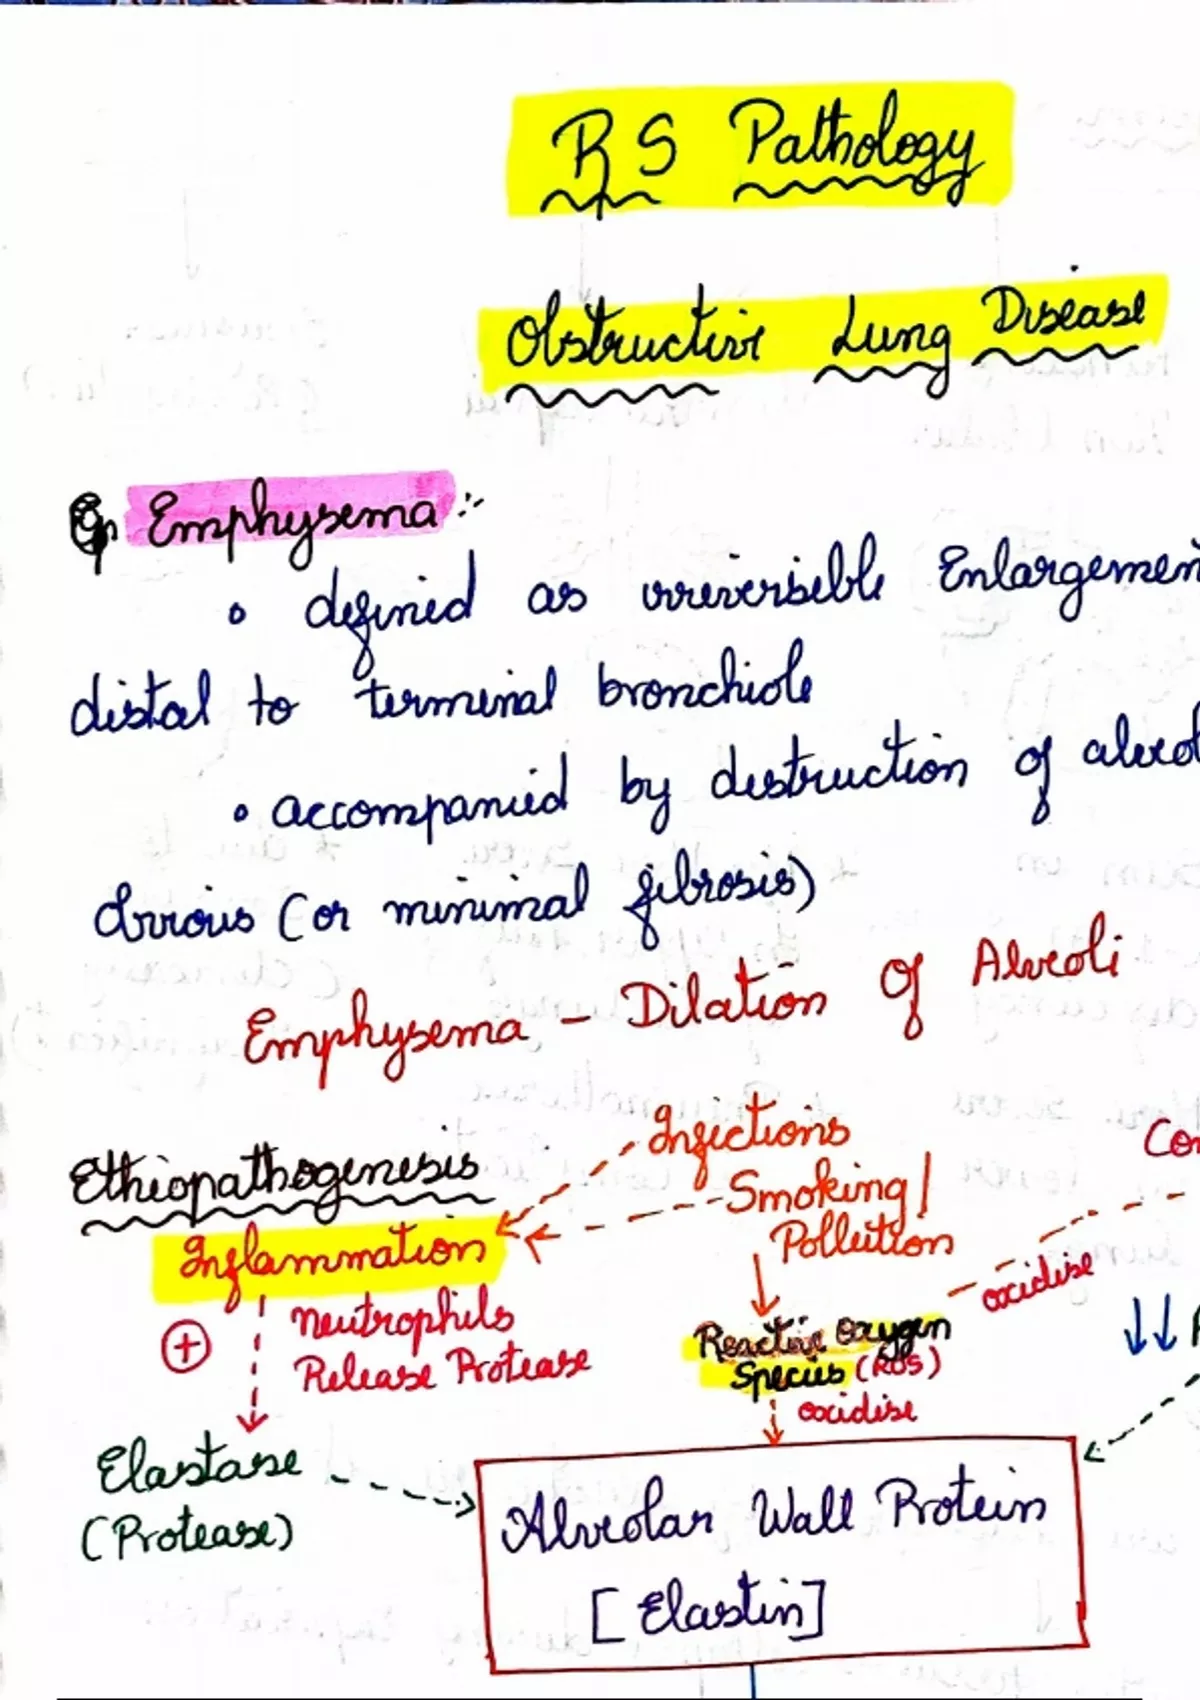 RS Pathology
Obstructive Lung Disease
Emphysema :-
• defined as irreversible Enlargemen
distal to terminal bronchiole
• accompanied by destruction of alveol
(or minimal fibrosis)
Emphysema - Dilation Of Alveoli
Infections
Ethiopathogenesis
Smoking/
Pollution
Inflammation
oxidise
⊕ neutrophils
Release Protease
Reactive Oxygen
Species (ROS)
↓↓
oxidise
Elastase
(Protease)
Alveolar Wall Protein
[Elastin]